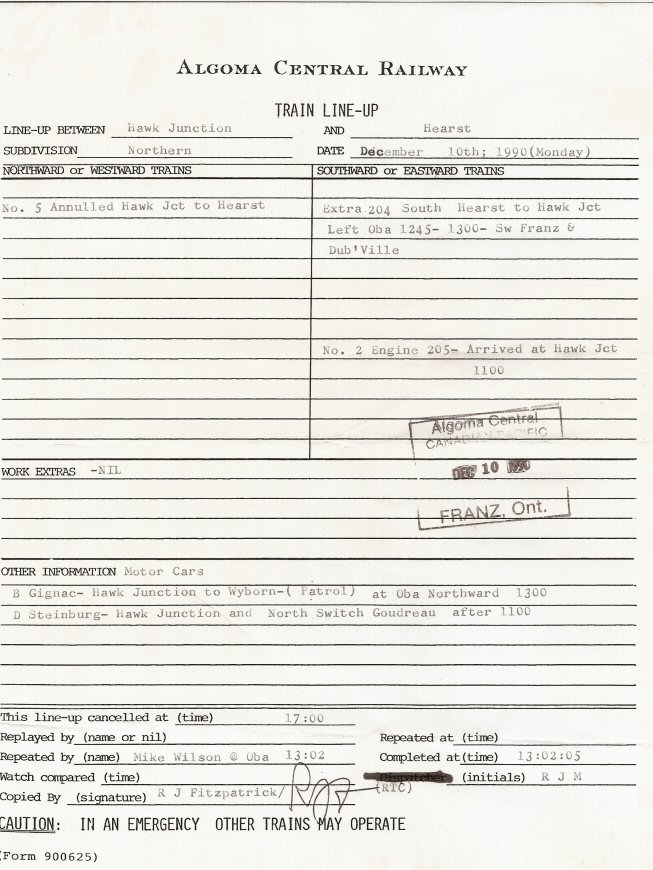 ALGOMA CENTRAL RAILWAY
TRAIN LINE-UP
LINE-UP BETWEEN Hawk Junction AND Hearst
SUBDIVISION Northern DATE December 10th; 1990(Monday)
NORTHWARD or WESTWARD TRAINS SOUTHWARD or EASTWARD TRAINS
No. 5 Annulled Hawk Jct to Hearst Extra 204 South Hearst to Hawk Jct
Left Oba 1245- 1300- Sw Franz &
Dub'Ville
No. 2 Engine 205- Arrived at Hawk Jct
1100
Algoma Central
CANADIAN PACIFIC
DEC 10 1990
FRANZ, Ont.
WORK EXTRAS -NIL
OTHER INFORMATION Motor Cars
B Gignac- Hawk Junction to Wyborn-( Patrol) at Oba Northward 1300
D Steinburg- Hawk Junction and North Switch Goudreau after 1100
This line-up cancelled at (time) 17:00
Replayed by (name or nil) Repeated at (time)
Repeated by (name) Mike Wilson @ Oba 13:02 Completed at(time) 13:02:05
Watch compared (time) Dispatcher (initials) R J M
(RTC)
Copied By (signature) R J Fitzpatrick/
CAUTION: IN AN EMERGENCY OTHER TRAINS MAY OPERATE
(Form 900625)